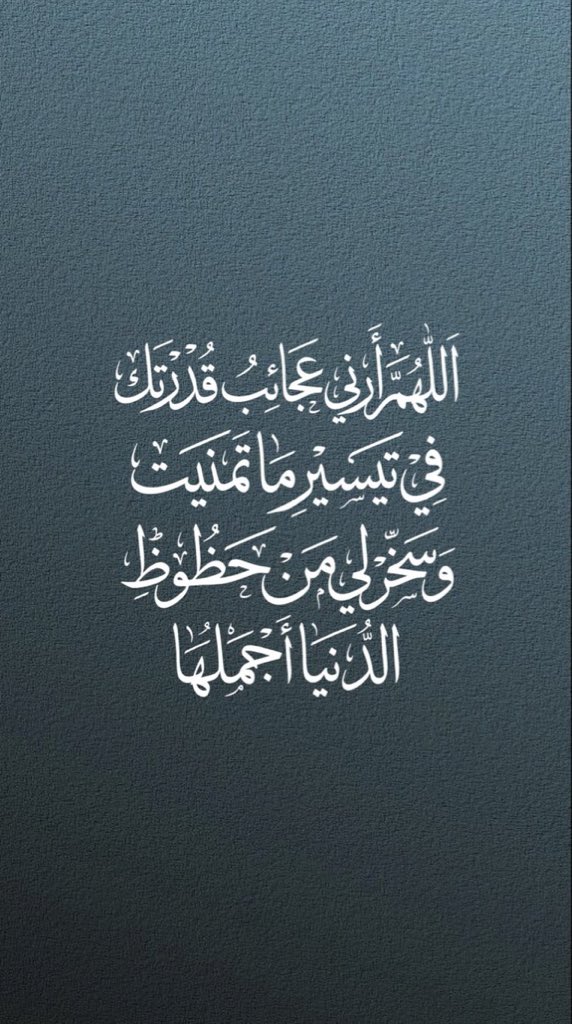 اَللّٰهُمَّ أَرِني عَجَائِبُ قُدْرَتَك
فِيْ تَيسَيْرِ مَا تَمَنَيَت
وَسَخّرْ لي مَنْ حَظُوظِ
الدُّنيَا أَجْمَلْهَا